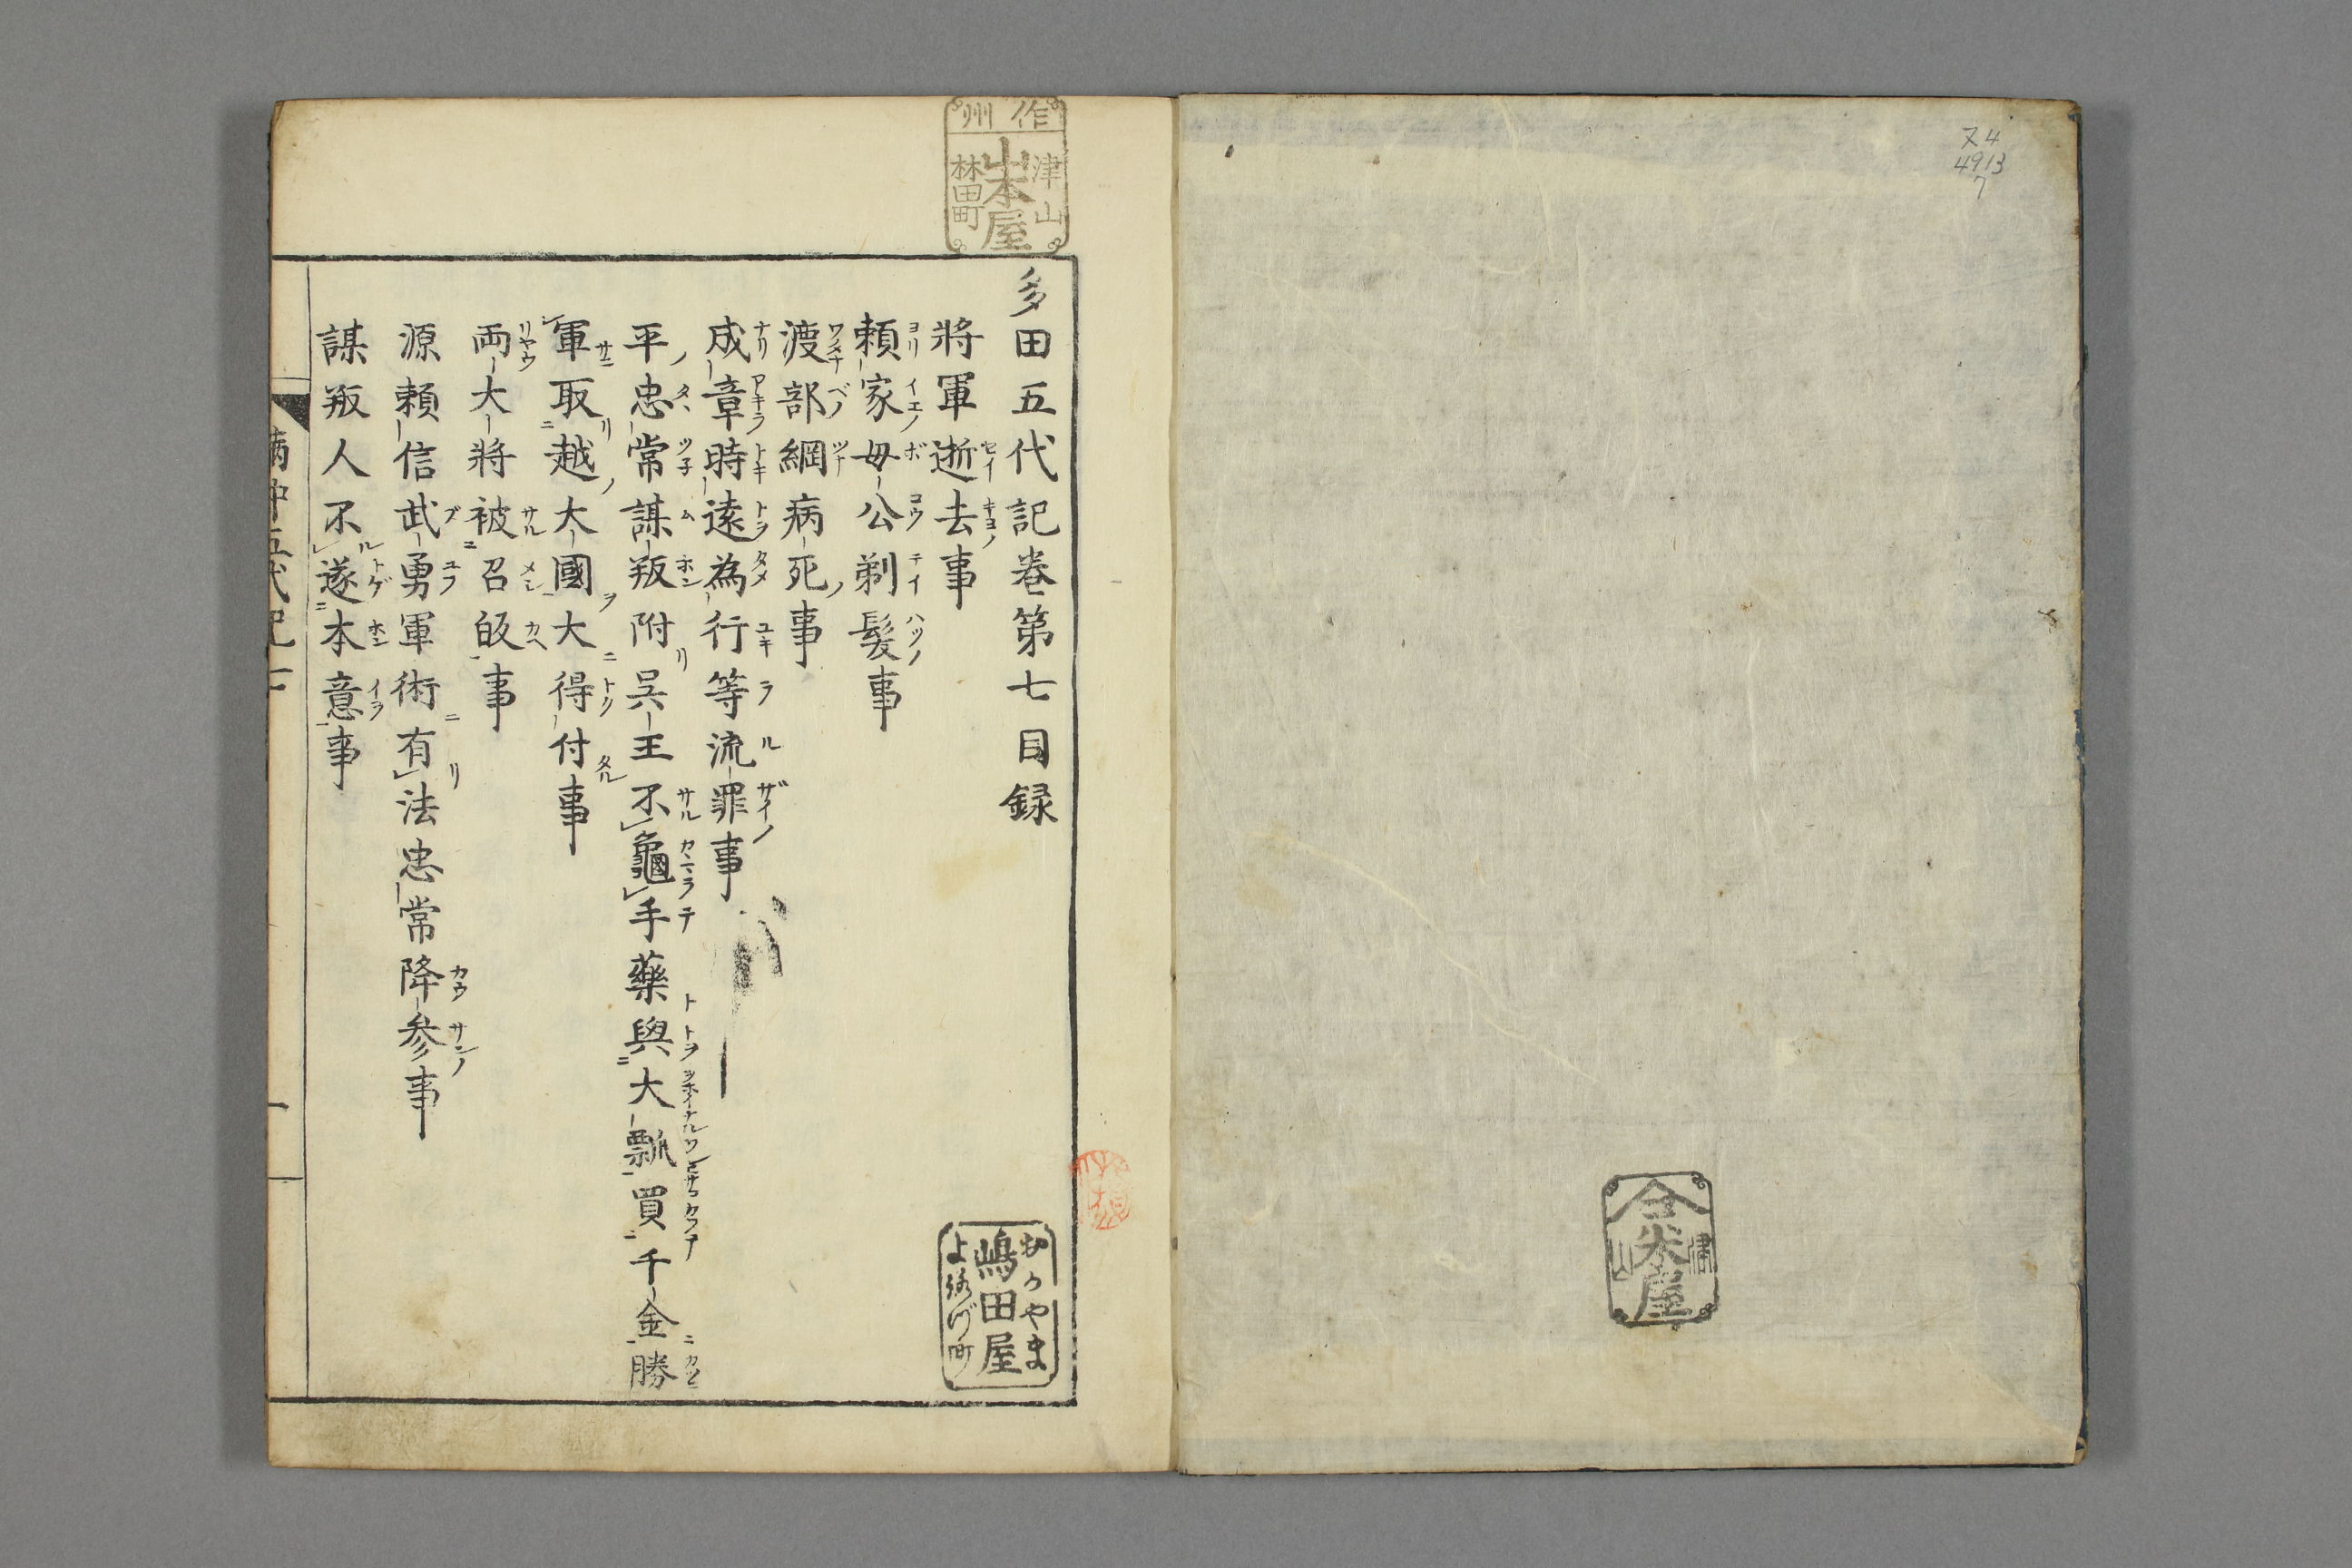 ヌ4
4913
7
合
米屋
津山
作州
津山
山本屋
林田町
多田五代記巻第七目録
將軍逝去事
頼家母公剃髪事
渡部綱病死事
成章時遠為行等流罪事
平忠常謀叛附呉王不龜手藥與大瓢買千金勝
軍取越大國大得付事
両大將被召皈事
源頼信武勇軍術有法忠常降参事
謀叛人不遂本意事
おかやま
嶋田屋
満仲五代記七
一